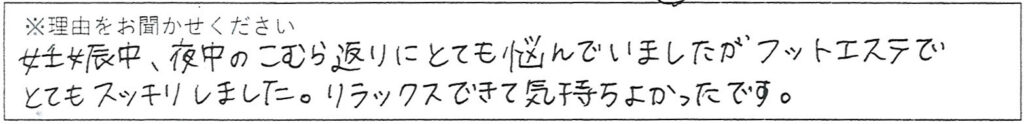 ※理由をお聞かせください
妊娠中、夜中のこむら返りにとても悩んでいましたがフットエステで
とてもスッキリしました。リラックスできて気持ちよかったです。